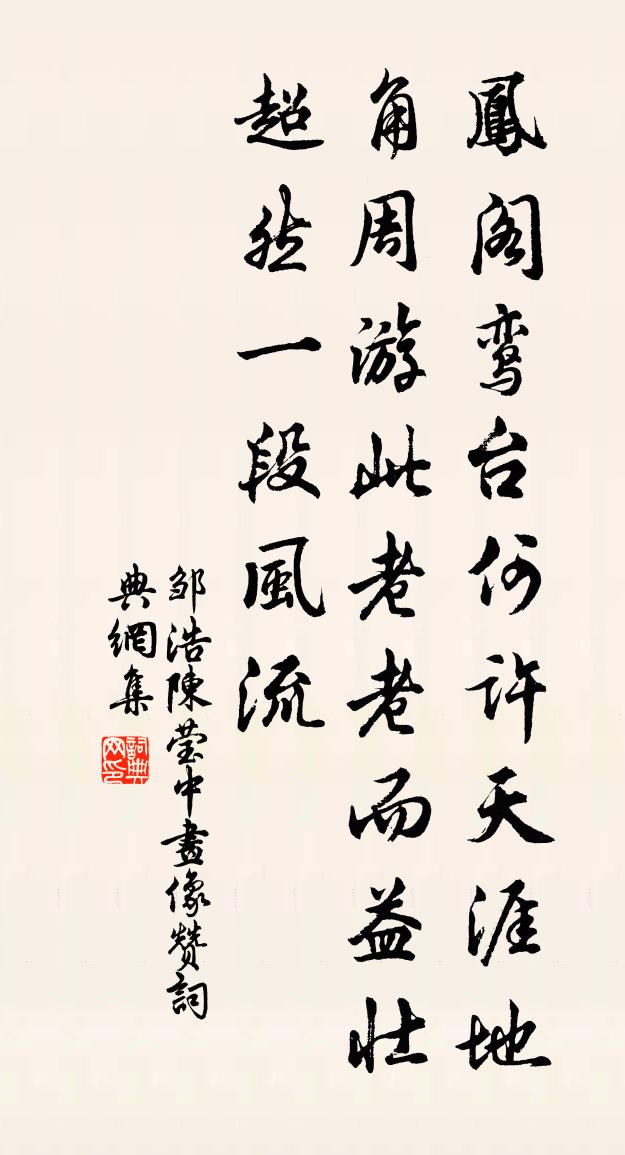 鳳阁鸾台何许天涯地
角周游此老老而益壮
超然一段風流
邹浩陳莹中畫像赞詞
典網集
詞典网印